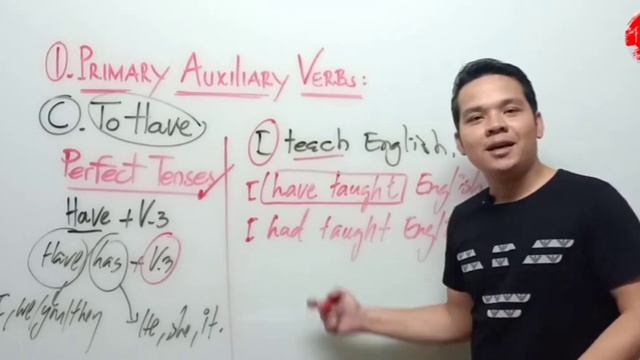 1. PRIMARY AUXILIARY VERBS:
C. To Have
Perfect Tenses
Have + V.3
Have has + V.3
I, we/you/they
He, she, it.
I teach English.
I have taught English
I had taught Engli